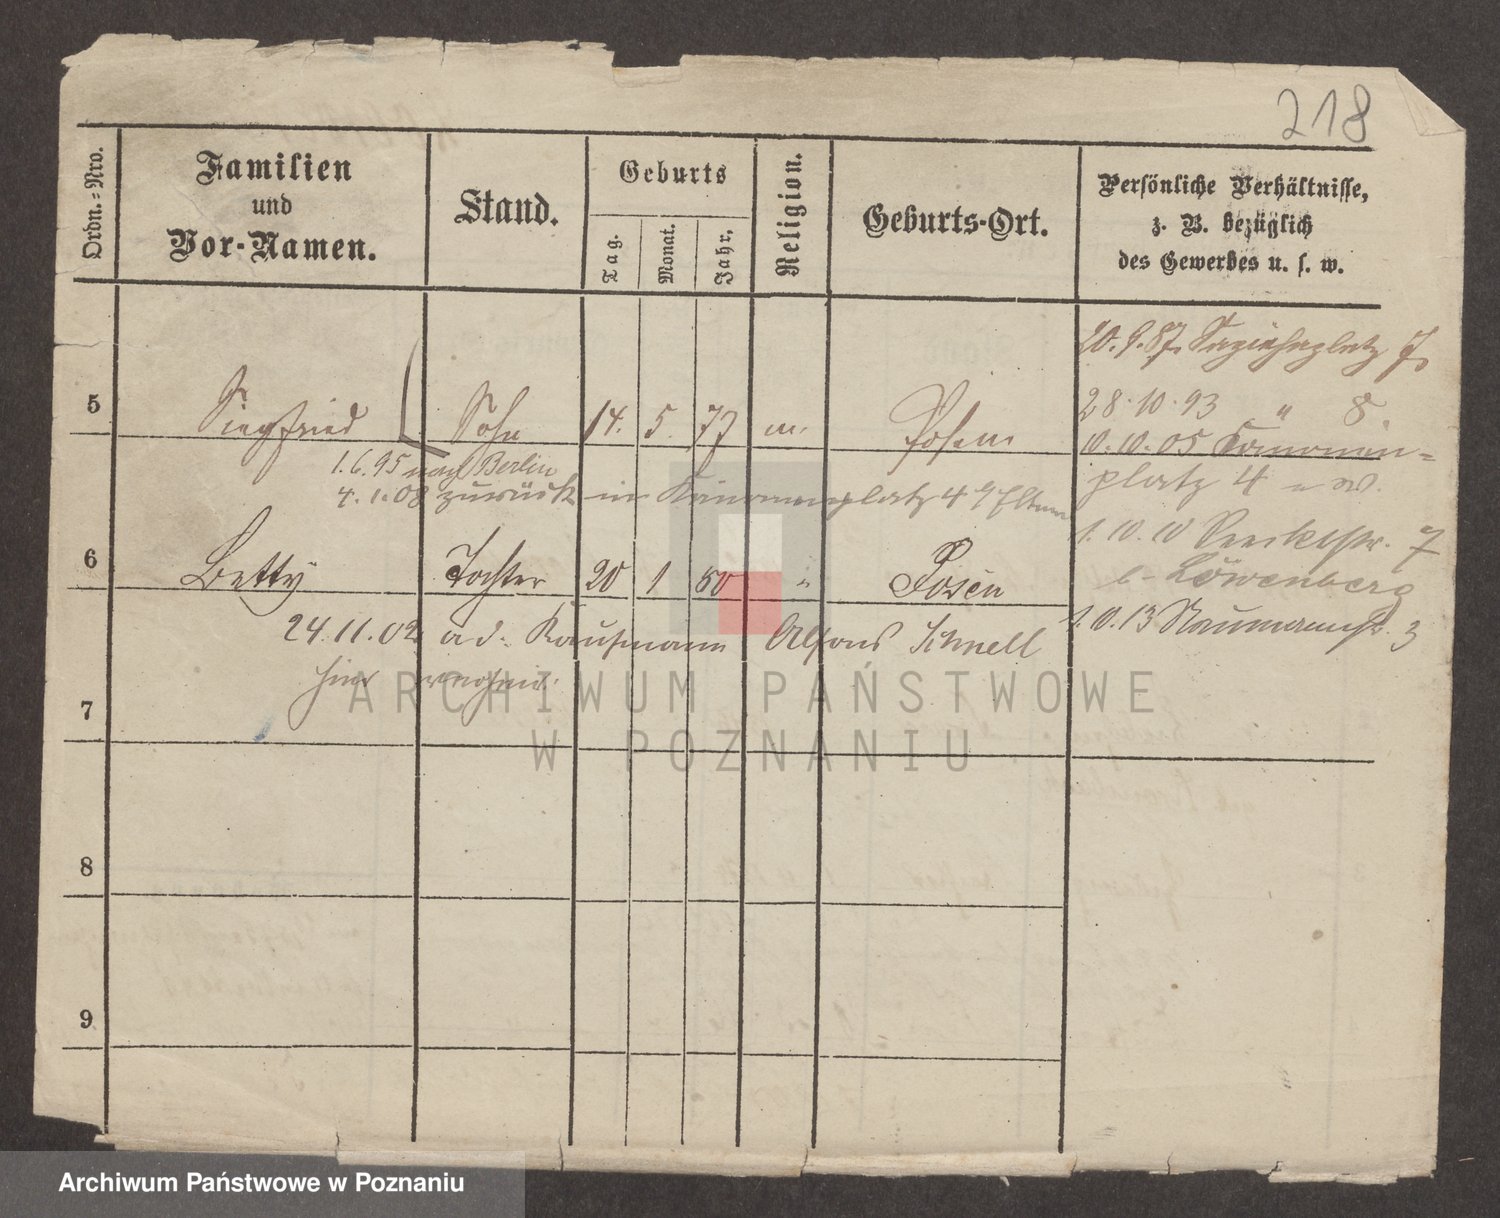 218
Ordn.-Nro.
Familien
und
Vor-Namen.
Stand.
Geburts
Tag.
Monat.
Jahr.
Religion.
Geburts-Ort.
Persönliche Verhältnisse,
z. B. bezüglich
des Gewerbes u. s. w.
20.9.87. Sapiehaplatz 7.
5 Siegfried Sohn 14. 5. 77 m. Posen
28.10.93 " 8
10.10.05 Kanonen=
platz 4
1.6.95 nach Berlin
4.1.08 zurück in Kanonenplatz 4 Eltern
6 Betty Tochter 20 1 80 " Posen
1.10.10 7
b. Löwenberg
1.10.13 Naumannstr. 3
24.11.02 a. d. Kaufmann Alfons Schnell
hier
7
8
9
ARCHIWUM PAŃSTWOWE
W POZNANIU
Archiwum Państwowe w Poznaniu